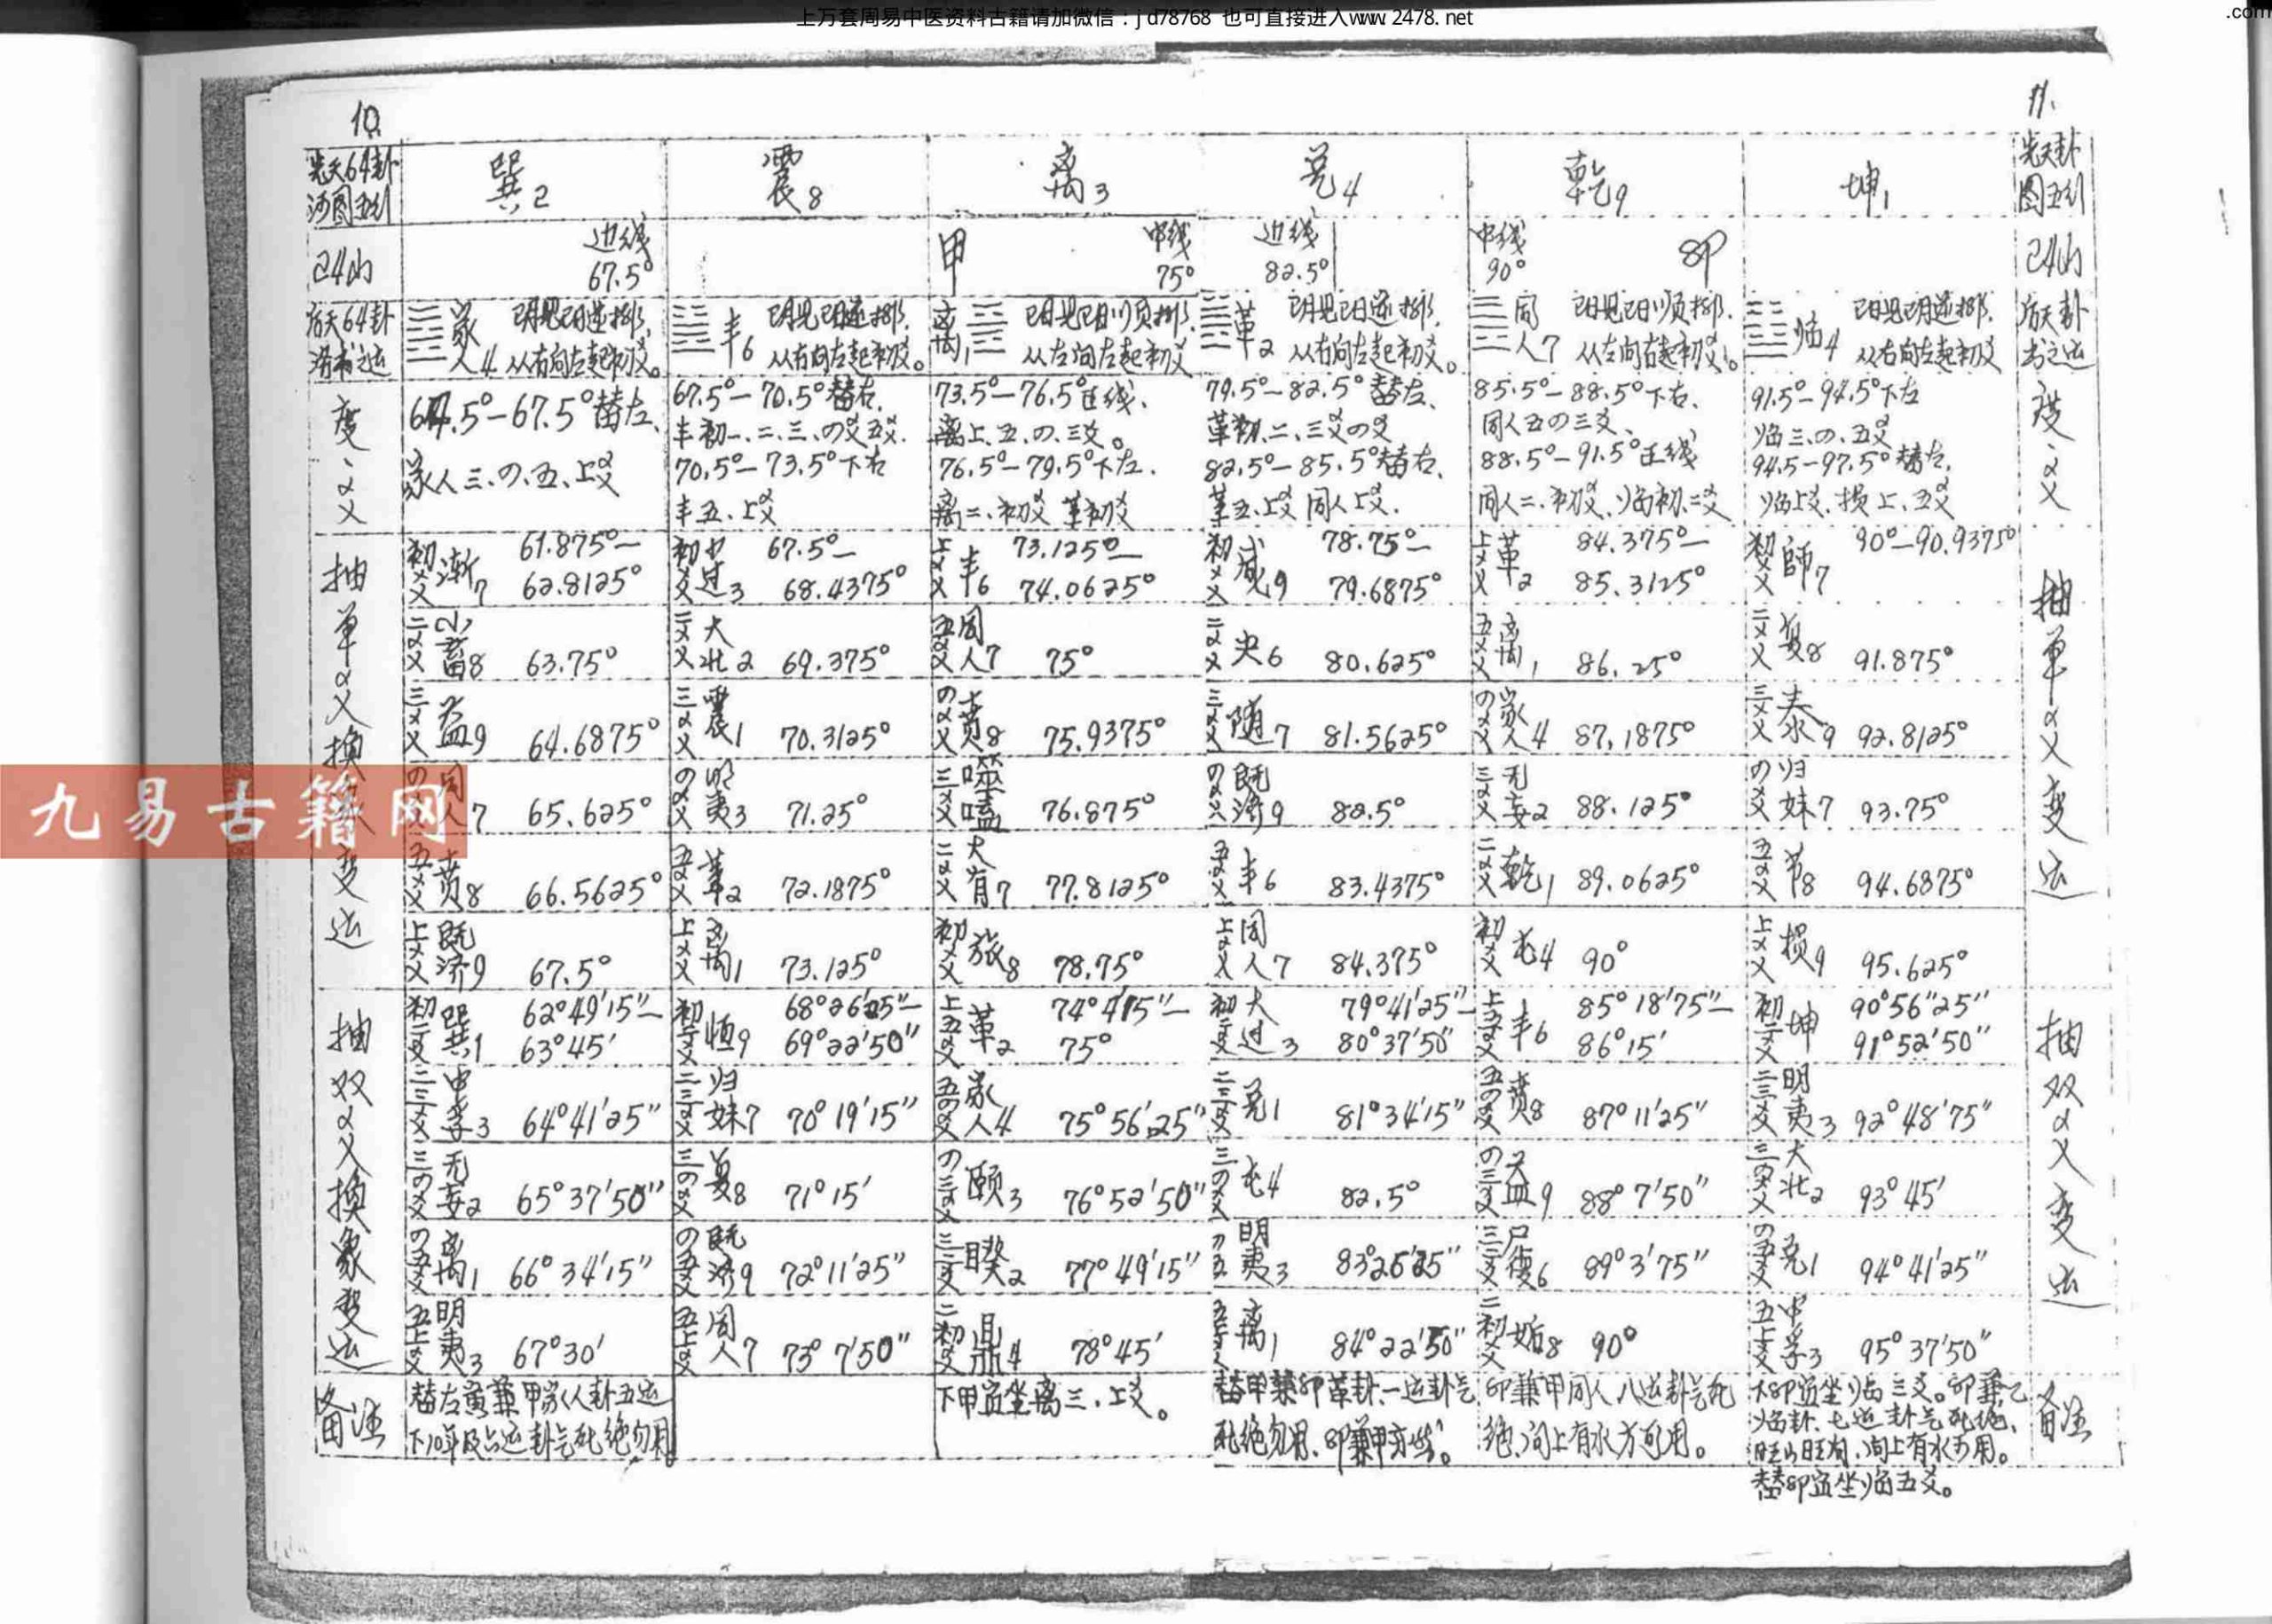 上万套周易中医资料古籍请加微信：jd78768 也可直接进入www.2478.net
.com
10
11.
先天64卦 巽2 震8 离3 兑4 乾9 坤1 先天卦
河图五行 图五行
24山 边线 67.5° 甲 中线 75° 边线 82.5° 中线 90° 卯 24山
后天64卦 家人4 丰6 离1 革2 同人7 临4 后天卦
洛书之运 从右向左起初爻。 从右向左起初爻。 从左向左起初爻 从右向左起初爻。 从左向右起初爻。 从右向左起初爻
度、爻 64.5°–67.5°替左、 67.5°–70.5°替右. 73.5°–76.5°正线、 79.5°–82.5°替左、 85.5°–88.5°下右、 91.5°–94.5°下左 度、爻
家人三、の、五、上爻 丰初一、二、三、の爻五爻. 离上、五、の、三爻。 革初、二、三爻の爻 同人五の三爻、 临三、の、五爻
70.5°–73.5°下右 76.5°–79.5°下左. 82.5°–85.5°替右、 88.5°–91.5°正线 94.5–97.5°替右.
丰五、上爻 离二、初爻 革初爻 革五、上爻 同人上爻. 同人二、初爻、临初、二爻 临上爻、损上、五爻
抽单爻换象变运
初爻 渐7 61.875°– 62.8125° 初爻 小过3 67.5°– 68.4375° 上爻 丰6 73.125°– 74.0625° 初爻 咸9 78.75°– 79.6875° 上爻 革2 84.375°– 85.3125° 初爻 師7 90°–90.9375°
二爻 小畜8 63.75° 二爻 大壮2 69.375° 五爻 同人7 75° 二爻 夬6 80.625° 五爻 离1 86.25° 二爻 复8 91.875°
三爻 益9 64.6875° 三爻 震1 70.3125° の爻 贲8 75.9375° 三爻 随7 81.5625° の爻 家人4 87.1875° 三爻 泰9 92.8125°
の爻 同人7 65.625° の爻 明夷3 71.25° 三爻 噬嗑 76.875° の爻 既济9 82.5° 三爻 无妄2 88.125° の爻 归妹7 93.75°
五爻 贲8 66.5625° 五爻 革2 72.1875° 二爻 大有7 77.8125° 五爻 丰6 83.4375° 二爻 乾1 89.0625° 五爻 节8 94.6875°
上爻 既济9 67.5° 上爻 离1 73.125° 初爻 旅8 78.75° 上爻 同人7 84.375° 初爻 屯4 90° 上爻 损9 95.625°
抽单爻变运
抽双爻换象变运
初二爻 巽1 62°49′15″– 63°45′ 初二爻 恒9 68°26′25″– 69°22′50″ 上五爻 革2 74°4′15″– 75° 初二爻 大过3 79°41′25″– 80°37′50″ 上五爻 丰6 85°18′75″– 86°15′ 初二爻 坤 90°56″25″ 91°52′50″
二三爻 中孚3 64°41′25″ 二三爻 归妹7 70°19′15″ 五の爻 家人4 75°56′25″ 二三爻 兑1 81°34′15″ 五の爻 贲8 87°11′25″ 二三爻 明夷3 92°48′75″
三の爻 无妄2 65°37′50″ 三の爻 复8 71°15′ の三爻 颐3 76°52′50″ 三の爻 屯4 82.5° の三爻 益9 88°7′50″ 三の爻 大壮2 93°45′
の五爻 离1 66°34′15″ の五爻 既济9 72°11′25″ 三二爻 睽2 77°49′15″ の五 明夷3 83°26′25″ 三二爻 履6 89°3′75″ の五爻 兑1 94°41′25″
五上爻 明夷3 67°30′ 五上爻 同人7 73°7′50″ 二初爻 鼎4 78°45′ 五上爻 离1 84°22′50″ 二初爻 姤8 90° 五上爻 中孚3 95°37′50″
抽双爻变运
备注 替左寅兼甲家人卦五运 下甲宜坐离三、上爻。 替甲兼卯革卦、一运卦气 卯兼甲同人八运卦气死 下卯宜坐临三爻。卯兼乙 备注
下10年及六运卦气死绝勿用 死绝勿用、卯兼甲亦然。 绝、向上有水方可用。 临卦、七运卦气死绝、
旺山旺向、向上有水可用。
替卯宜坐临五爻。
九易古籍网